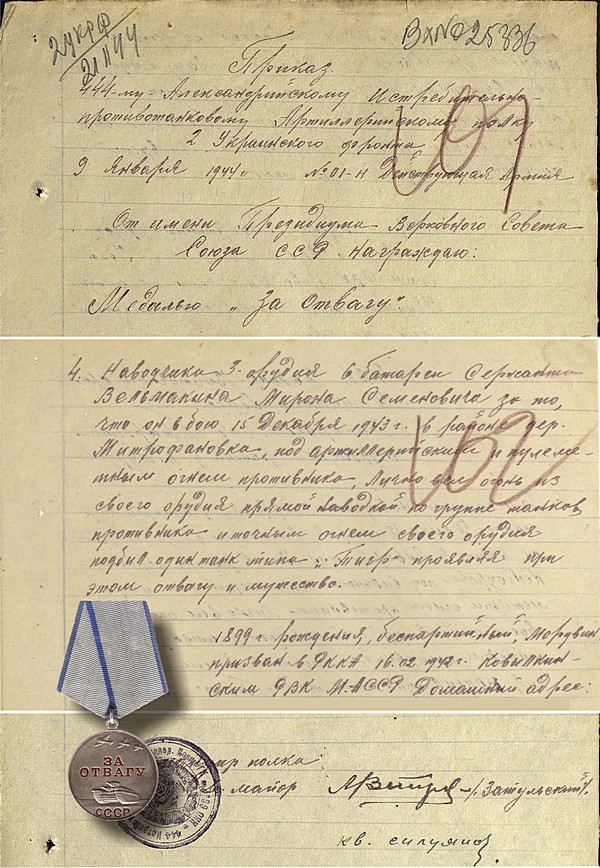 2 УКРФ
21 II 44
Вх№ 25836
Приказ
444-му Александрийскому Истребительно-
противотанковому Артиллерийскому полку
2 Украинского фронта
9 Января 1944 г №01-Н Действующая Армия
От имени Президиума Верховного Совета
Союза ССР награждаю:
Медалью „За Отвагу".
4. Наводчика 3-орудия 6 батареи Сержанта
Вельмакина Мирона Семеновича за то,
что он в бою 15 Декабря 1943 г. в районе дер.
Митрофановка, под артиллерийским и пулеме-
тным огнем противника, Лично вел огонь из
своего орудия прямой наводкой по группе танков
противника и точным огнем своего орудия
подбил один танк типа „Тигр" проявляя при
этом отвагу и мужество.
1899 г. рождения, беспартийный, Мордвин
призван в РККА 16.02 1942 г. Ковылкин-
ским РВК М.АССР Домашний адрес:
полка
майор /Затульский/.
кв.
ЗА
ОТВАГУ
СССР